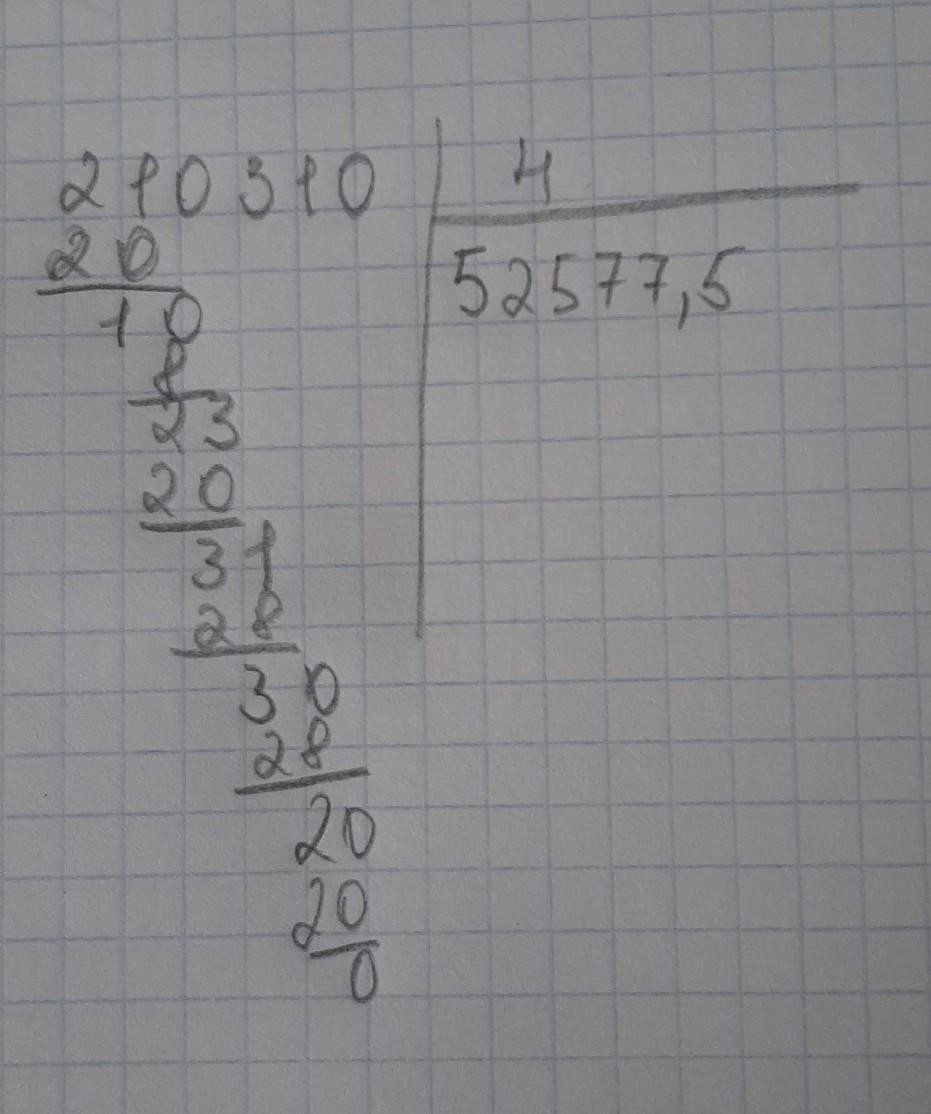 210310 4
20 52577,5
10
8
23
20
31
28
30
28
20
20
0